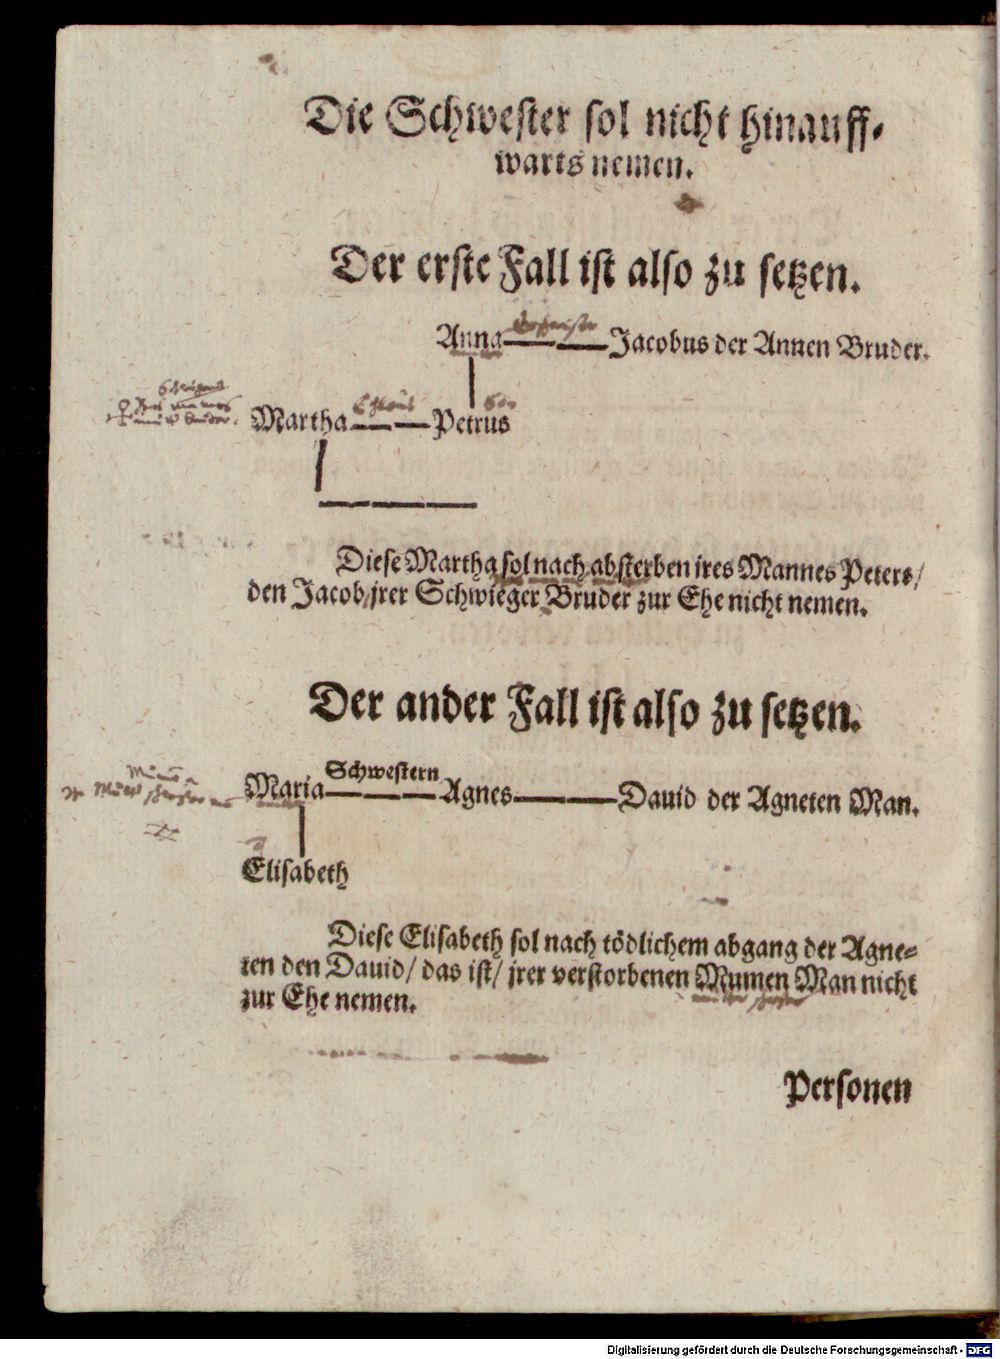 Die Schwester sol nicht hinauff-
warts nemen.
Der erste Fall ist also zu setzen.
Anna Jacobus der Annen Bruder.
Martha Petrus
Diese Martha sol nach absterben ires Mannes Peters/
den Jacob/jrer Schwieger Bruder zur Ehe nicht nemen.
Der ander Fall ist also zu setzen.
Schwestern
Maria Agnes Dauid der Agneten Man.
Elisabeth
Diese Elisabeth sol nach tödlichem abgang der Agne-
ten den Dauid/ das ist/ jrer verstorbenen Mumen Man nicht
zur Ehe nemen.
Personen
Digitalisierung gefördert durch die Deutsche Forschungsgemeinschaft - DFG